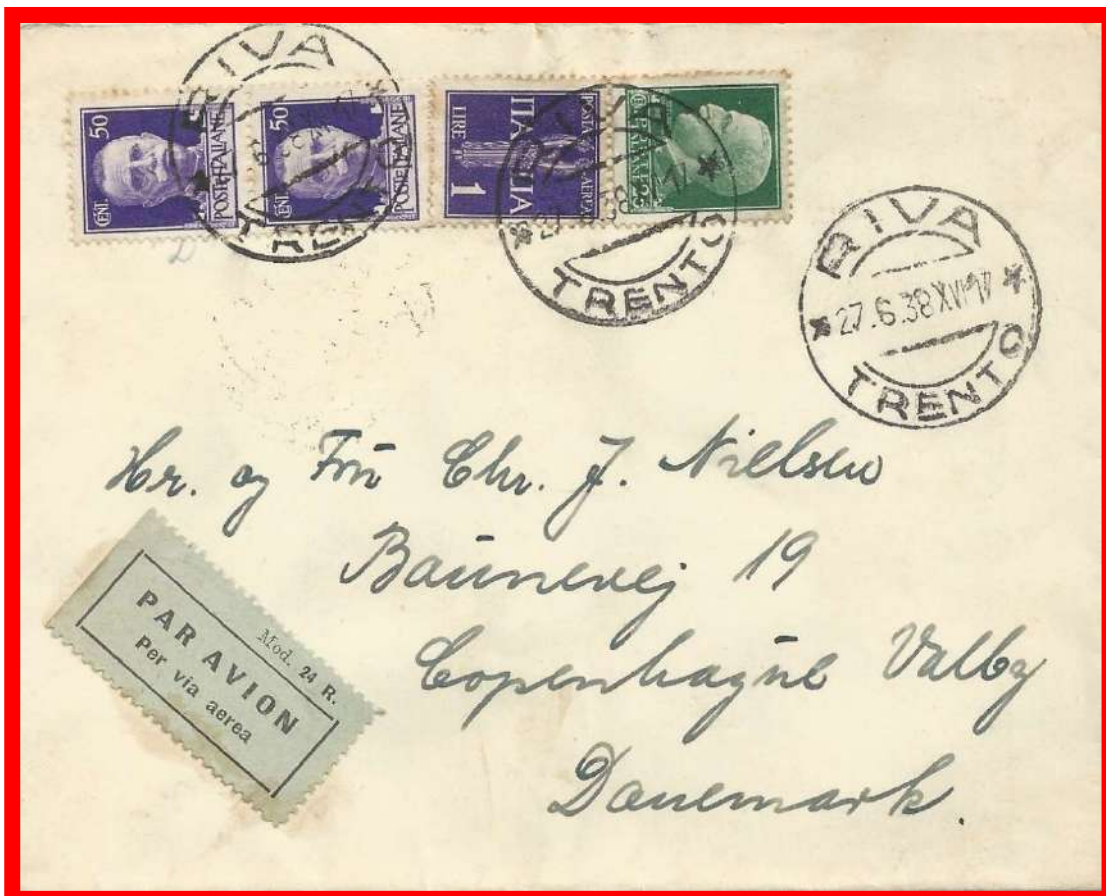 RIVA
TRENTO
CENT. 50
POSTE ITALIANE
CENT. 50
POSTE ITALIANE
LIRE 1
ITALIA
POSTA AEREA
RIVA
TRENTO
RIVA
27.6.38 XVI 17
TRENTO
Hr. og Frú Chr. J. Nielsen
Baunevej 19
Copenhague Valby
Danemark.
Mod. 24 R.
PAR AVION
Per via aerea